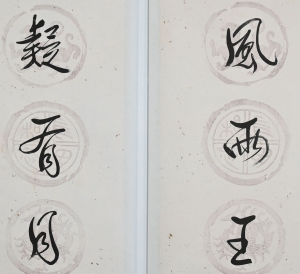 風雨王
疑有月